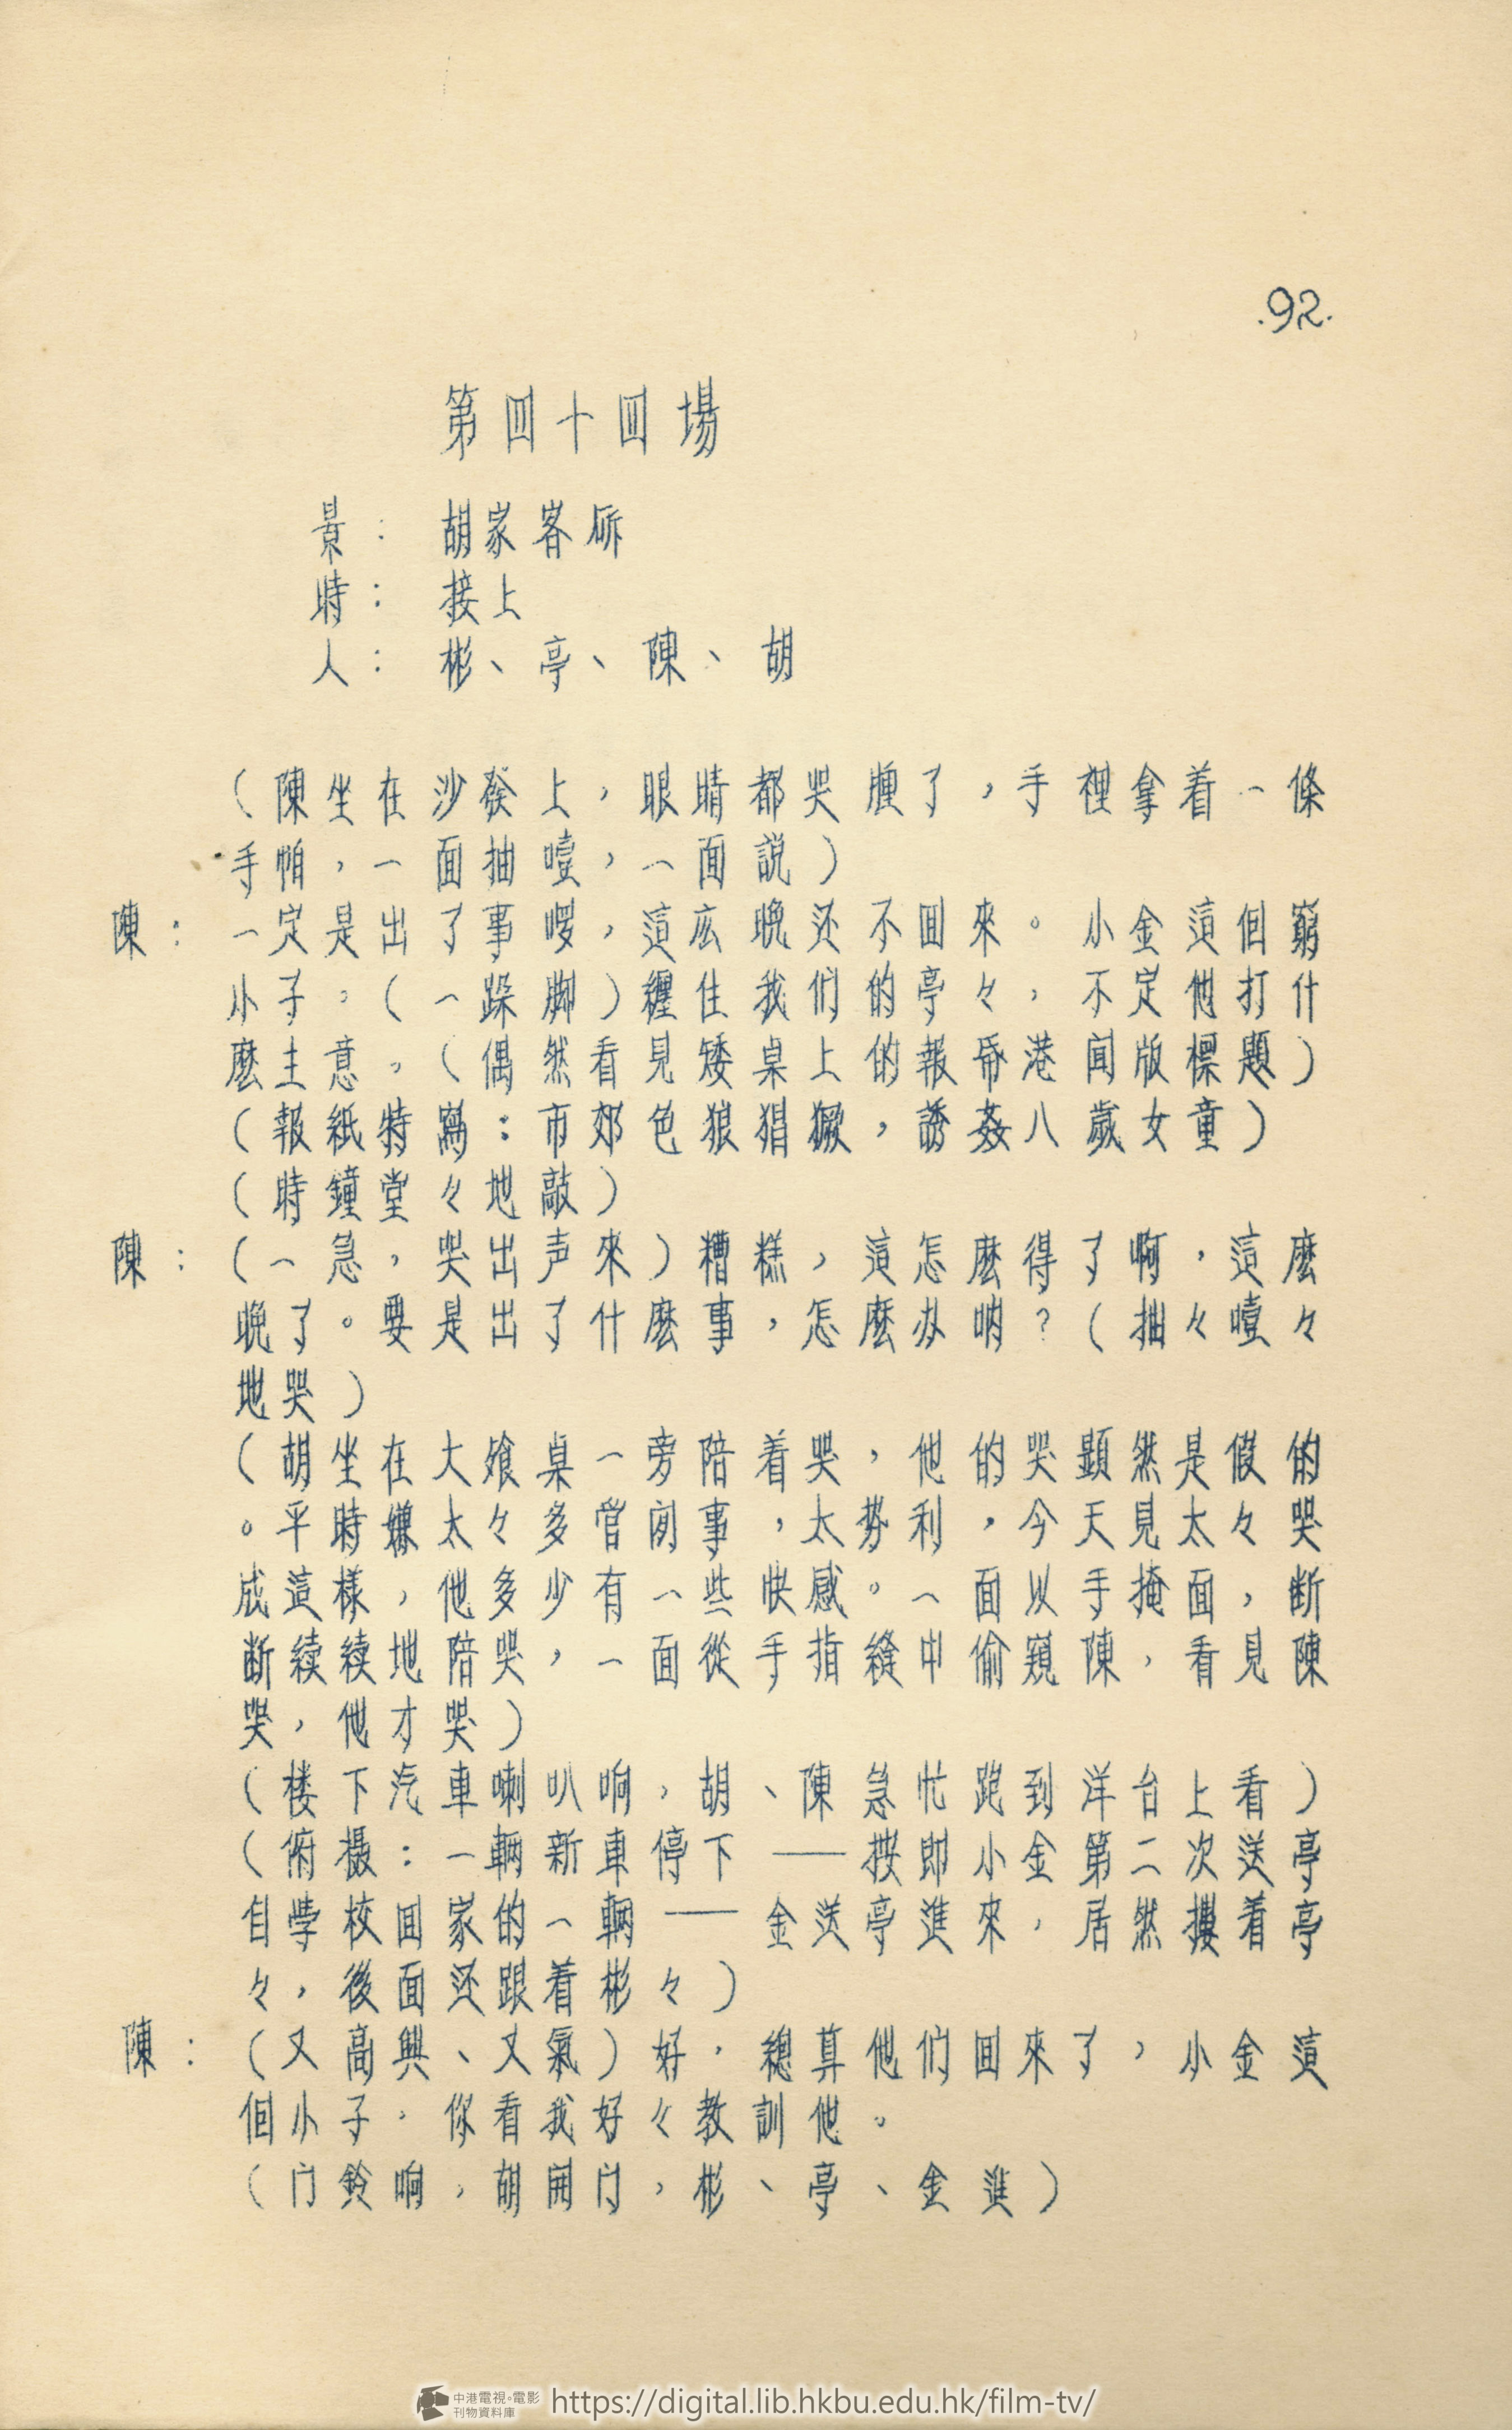 .92.
第四十四場
景：胡家客厛
時：接上
人：彬、亭、陳、胡
（陳坐在沙發上，眼睛都哭腫了，手裡拿着一條
手帕，一面抽噎，一面説）
陳：一定是出了事啰，這庅晚还不囬來。小金這個窮
小子。（一跺脚）纒住我们的亭々，不定他打什
麽主意。（偶然看見矮桌上的報帋港闻版標題）
（報紙特寫：市郊色狼猖獗，誘姦八歲女童）
（時鐘堂々地敲）
陳：（一急，哭出声來）糟糕，這怎麽得了啊，這麽
晚了。要是出了什麽事，怎麽办呐？（抽々噎々
地哭）
（胡坐在大飡桌一旁陪着哭，他的哭顕然是假的
。平時嫌太々多管闲事，太势利，今天見太々哭
成這樣，他多少有一些快感。一面以手掩面，断
断續續地陪哭，一面從手指縫中偷窺陳，看見陳
哭，他才哭）
（楼下汽車喇叭响，胡、陳急忙跑到洋台上看）
（俯攝：一輛新車停下——按即小金第二次送亭
自學校囬家的一輛——金送亭進來，居然摟着亭
々，後面还跟着彬々）
陳：（又高興、又氣）好，總算他们囬來了，小金這
個小子，你看我好々教訓他。
（门鈴响，胡開门，彬、亭、金進）
中港電視·電影
刊物資料庫
https://digital.lib.hkbu.edu.hk/film-tv/